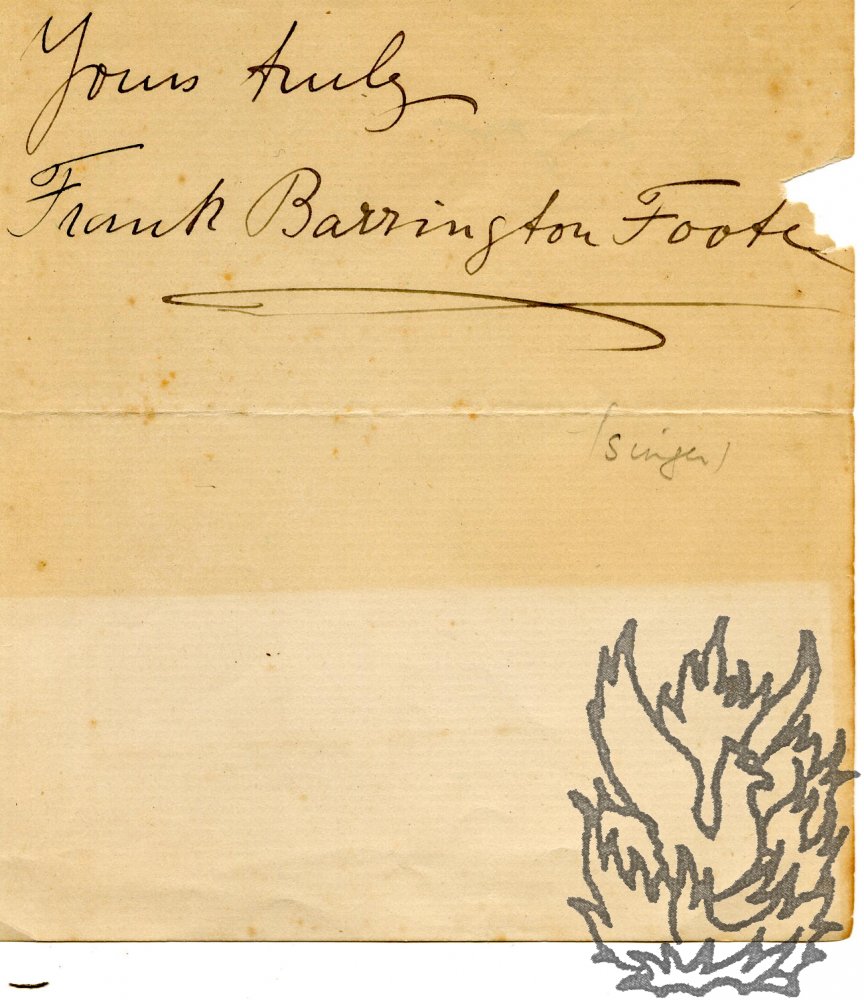 Yours truly
Frank Barrington Foote
(singer)